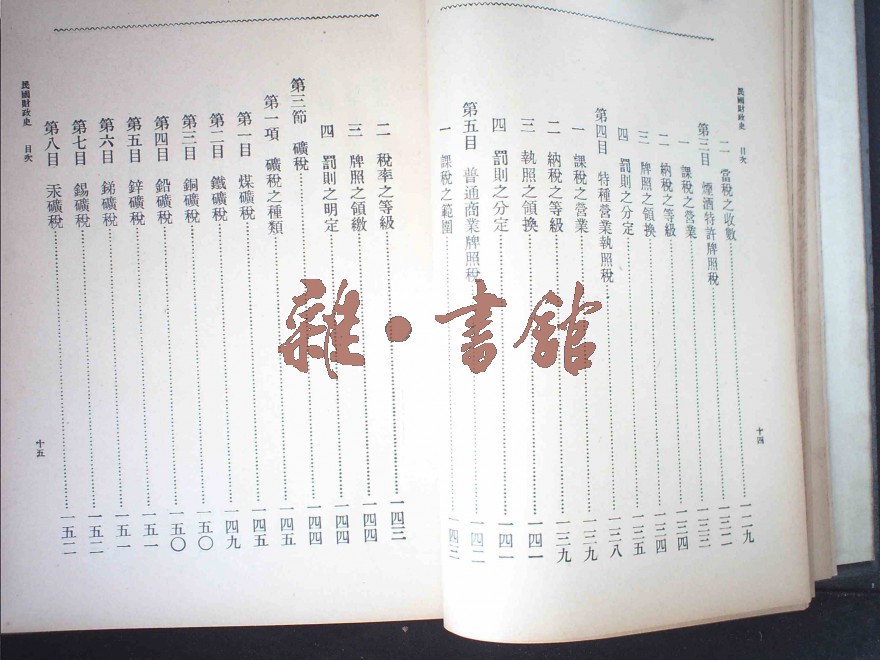 民國財政史 目次 十四
二 當稅之收數 一二九
第三目 煙酒特許牌照稅 一三二
一 課稅之營業 一三三
二 納稅之等級 一三四
三 牌照之領換 一三四
四 罰則之分定 一三五
第四目 特種營業執照稅 一三八
一 課稅之營業 一三九
二 納稅之等級 一三九
三 執照之領換 一四一
四 罰則之分定 一四一
第五目 普通商業牌照稅 一四二
一 課稅之範圍 一四三
二 稅率之等級 一四三
三 牌照之領繳 一四四
四 罰則之明定 一四四
第三節 礦稅 一四四
第一項 礦稅之種類 一四五
第一目 煤礦稅 一四五
第二目 鐵礦稅 一四九
第三目 銅礦稅 一五〇
第四目 鉛礦稅 一五〇
第五目 鋅礦稅 一五一
第六目 銻礦稅 一五一
第七目 錫礦稅 一五二
第八目 汞礦稅 一五二
民國財政史 目次 十五
雜·書館